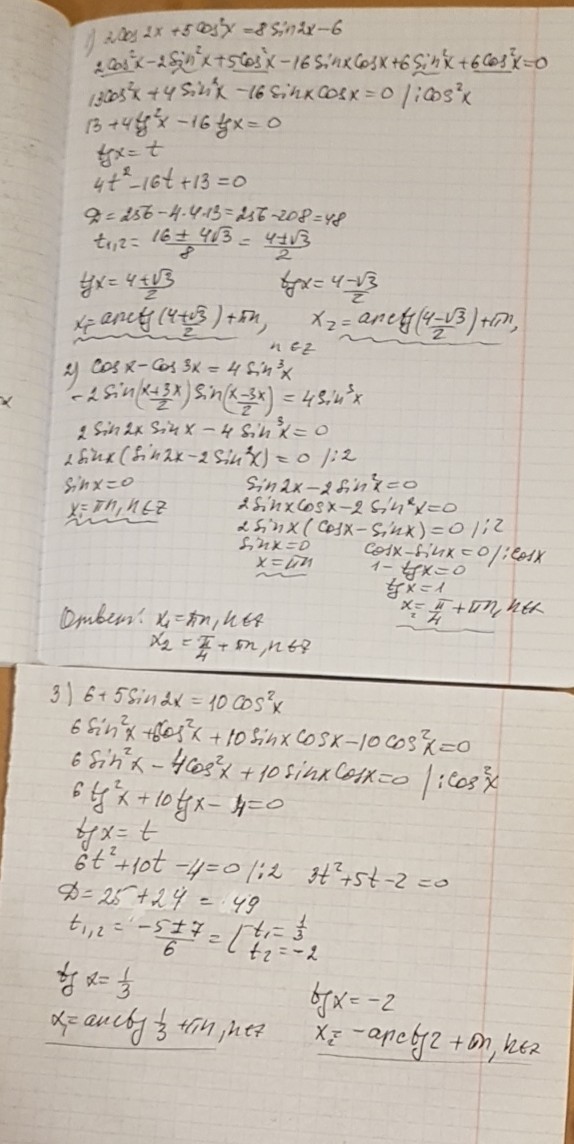 1) 2cos2x+5cos²x=8sin2x-6
2cos²x-2sin²x+5cos²x-16sinxcosx+6sin²x+6cos²x=0
13cos²x+4sin²x-16sinxcosx=0 /:cos²x
13+4tg²x-16tgx=0
tgx=t
4t²-16t+13=0
D=256-4·4·13=256-208=48
t₁,₂=(16±4√3)/8=(4±√3)/2
tgx=(4+√3)/2 tgx=(4-√3)/2
x₁=arctg((4+√3)/2)+πn, x₂=arctg((4-√3)/2)+πn,
n∈Z
2) cosx-cos3x=4sin³x
-2sin((x+3x)/2)sin((x-3x)/2)=4sin³x
2sin2xsinx-4sin³x=0
2sinx(sin2x-2sin²x)=0 /:2
sinx=0 sin2x-2sin²x=0
x₁=πn,n∈Z 2sinxcosx-2sin²x=0
2sinx(cosx-sinx)=0 /:2
sinx=0 cosx-sinx=0/:cosx
x=πn 1-tgx=0
tgx=1
x₂=π/4+πn,n∈Z
Ответ: x₁=πn,n∈Z
x₂=π/4+πn,n∈Z
3) 6+5sin2x=10cos²x
6sin²x+6cos²x+10sinxcosx-10cos²x=0
6sin²x-4cos²x+10sinxcosx=0 /:cos²x
6tg²x+10tgx-4=0
tgx=t
6t²+10t-4=0 /:2 3t²+5t-2=0
D=25+24=49
t₁,₂=(-5±7)/6=[t₁=1/3
t₂=-2
tgx=1/3 tgx=-2
x₁=arctg1/3+πn,n∈Z x₂=-arctg2+πn,n∈Z